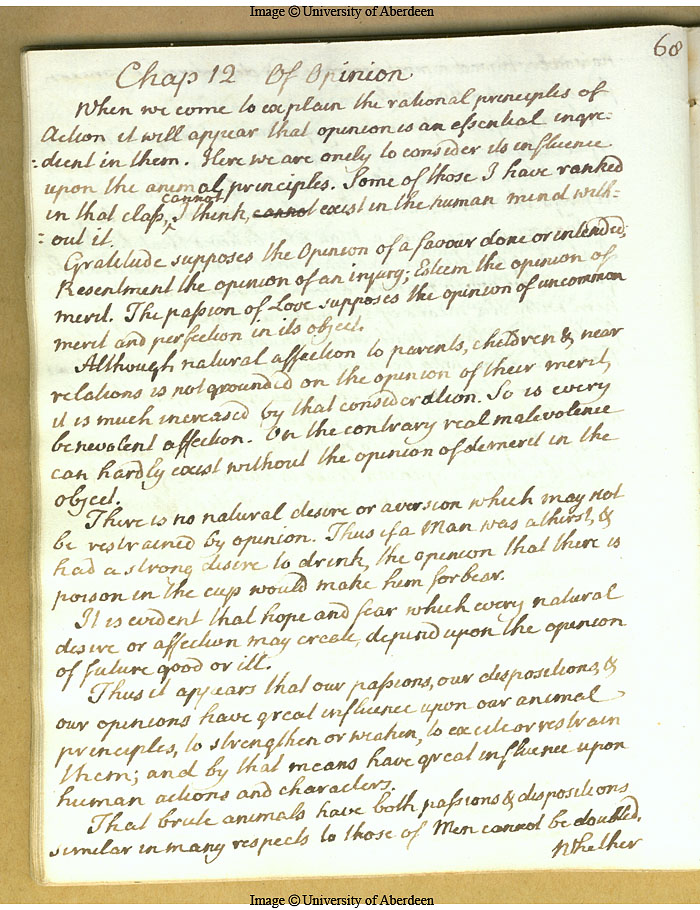 Image © University of Aberdeen
68
Chap 12 Of Opinion
When we come to explain the rational principles of
Action it will appear that opinion is an essential ingre-
:dient in them. Here we are onely to consider its influence
upon the animal principles. Some of those I have ranked
cannot
in that class, I think, cannot exist in the human mind with=
:out it.
Gratitude supposes the Opinion of a favour done or intended;
Resentment the opinion of an injury; Esteem the opinion of
merit. The passion of Love supposes the opinion of uncommon
merit and perfection in its object.
Although natural affection to parents, children & near
relations is not grounded on the opinion of their merit,
it is much increased by that consideration. So is every
benevolent affection. On the contrary real malevolence
can hardly exist without the opinion of demerit in the
object.
There is no natural desire or aversion which may not
be restrained by opinion. Thus if a Man was athirst, &
had a strong desire to drink, the opinion that there is
poison in the cup would make him forbear.
It is evident that hope and fear which every natural
desire or affection may create, depend upon the opinion
of future good or ill.
Thus it appears that our passions, our dispositions, &
our opinions have great influence upon our animal
principles, to strengthen or weaken, to excite or restrain
them; and by that means have great influence upon
human actions and characters.
That brute animals have both passions & dispositions
similar in many respects to those of Men cannot be doubted.
Whether
Image © University of Aberdeen